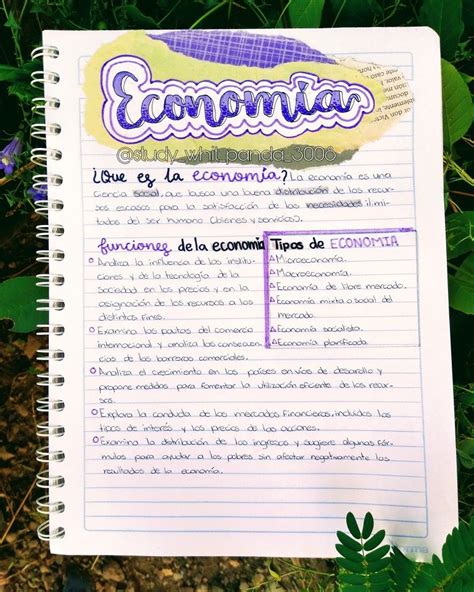 Economía
@study_whit_panda_3006
¿Que es la economía? La economía es una
ciencia social, que busca una buena distribución de los recur-
sos escasos para la satisfacción de las necesidades ilimi-
tados del ser humano (bienes y servicios).
funciones de la economía
Analiza la influencia de las institu-
ciones y de la tecnología de la
sociedad en los precios y en la
asignación de los recursos a los
distintos fines.
Examina las pautas del comercio
internacional y analiza las consecuen-
cias de las barreras comerciales.
Analiza el crecimiento en los países en vías de desarrollo y
propone medidas para fomentar la utilización eficiente de los recur-
sos.
Explora la conducta de los mercados financieros, incluidos los
tipos de interés y los precios de las acciones.
Examina la distribución de los ingresos y sugiere algunas fór-
mulas para ayudar a los pobres sin afectar negativamente los
resultados de la economía.
Tipos de ECONOMIA
Microeconomía.
Macroeconomía.
Economía de libre mercado.
Economía mixta o social del
mercado.
Economía socialista.
Economía planificada.